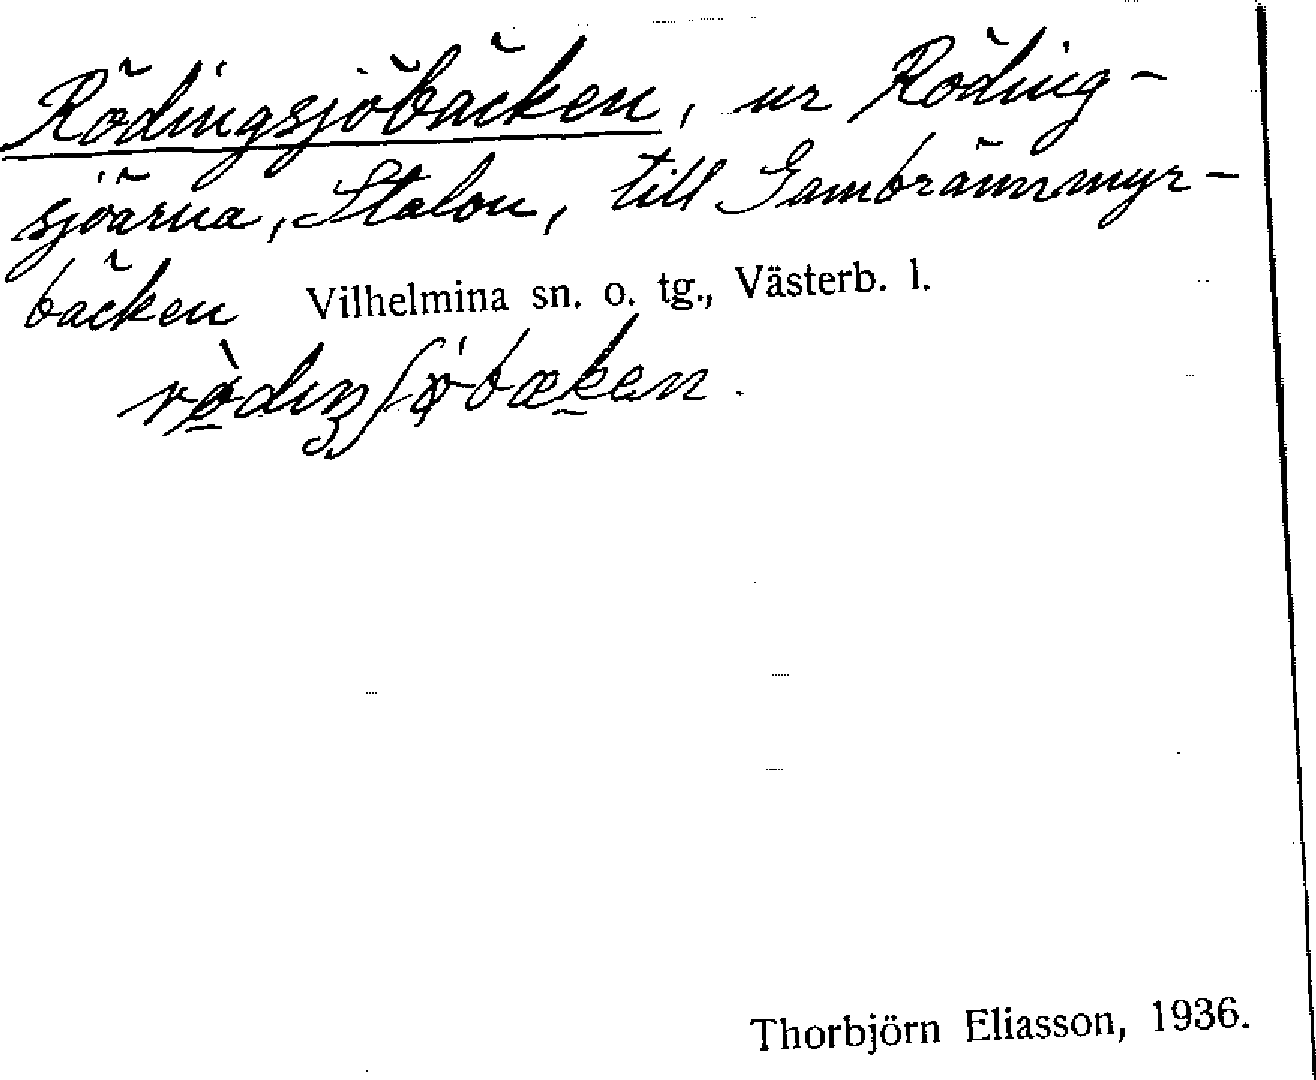 Rödingsjöbäcken, ur Röding-
sjöarna, Stalon, till Gambrännmyr-
bäcken Vilhelmina sn. o. tg., Västerb. l.
Thorbjörn Eliasson, 1936.